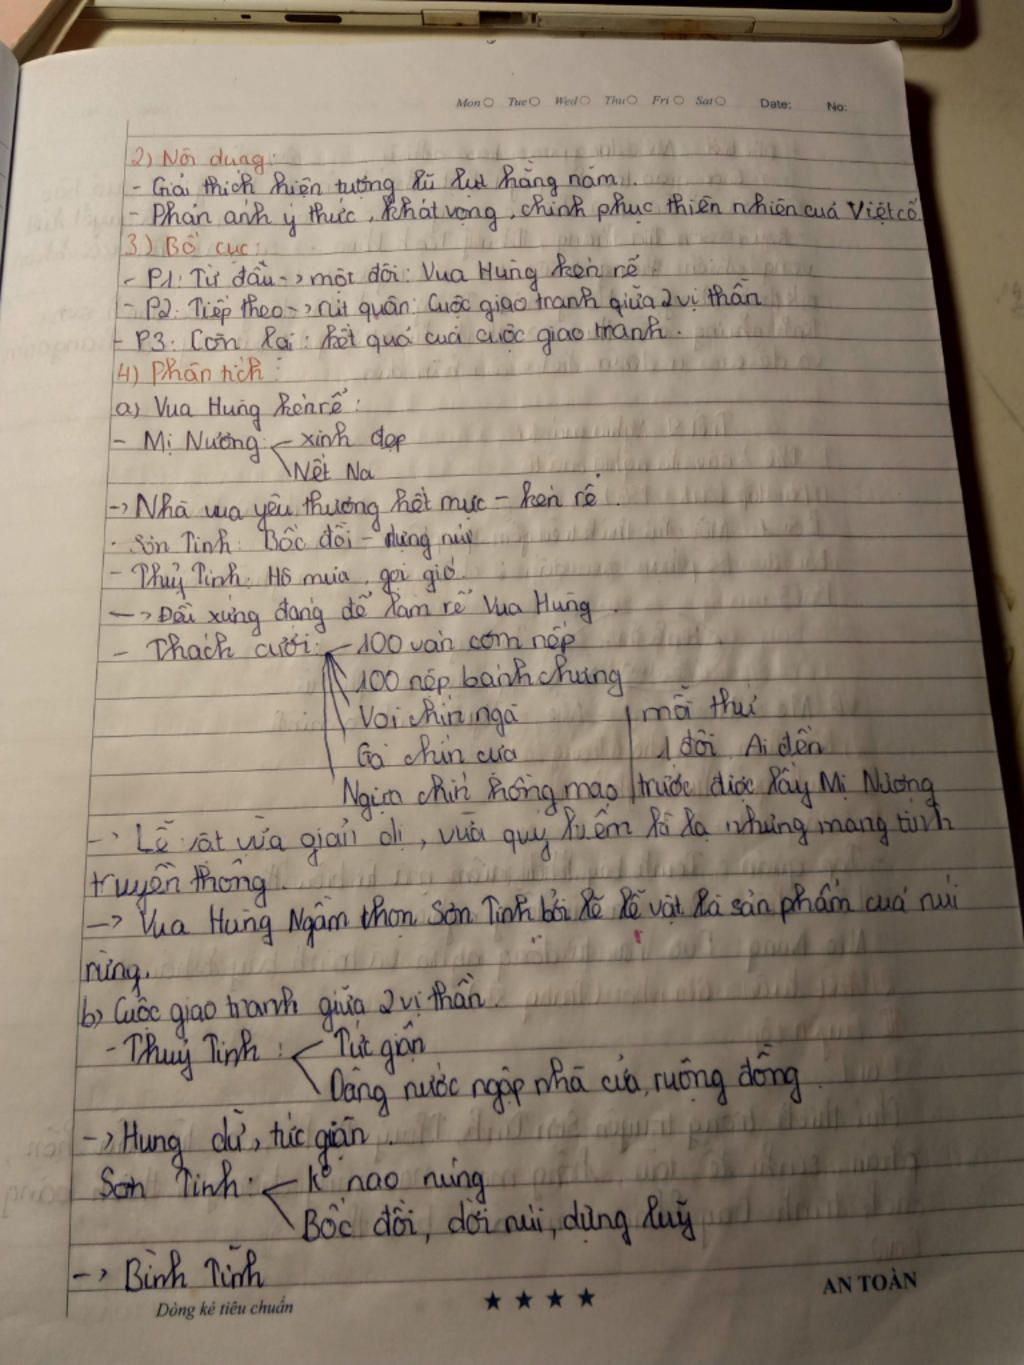 Mon Tue Wed Thu Fri Sat Date: No:
2) Nội dung:
- Giải thích hiện tượng lũ lụt hằng năm.
- Phản ánh ý thức, khát vọng, chinh phục thiên nhiên của Việt cổ
3) Bố cục:
- P1: Từ đầu -> một đôi: Vua Hùng kén rể.
- P2: Tiếp theo -> rút quân: Cuộc giao tranh giữa 2 vị thần
- P3: Còn lại: kết quả của cuộc giao tranh.
4) Phân tích:
a) Vua Hùng kén rể:
- Mị Nương: xinh đẹp
Nết Na
-> Nhà vua yêu thương hết mực - kén rể.
- Sơn Tinh: Bốc đồi - dựng núi
- Thuỷ Tinh: Hô mưa, gọi gió.
-> Đều xứng đáng để làm rể Vua Hùng.
- Thách cưới: 100 ván cơm nếp
100 nếp bánh chưng
Voi chín ngà mỗi thứ
Gà chín cựa 1 đôi Ai đến
Ngựa chín hồng mao trước được lấy Mị Nương
-> Lễ vật vừa giản dị, vừa quý hiếm kì lạ nhưng mang tính
truyền thống.
-> Vua Hùng Ngầm chọn Sơn Tinh bởi lẽ lễ vật là sản phẩm của núi
rừng.
b) Cuộc giao tranh giữa 2 vị thần.
- Thuỷ Tinh: Tức giận
Dâng nước ngập nhà cửa, ruộng đồng.
-> Hung dữ, tức giận.
Sơn Tinh: K° nao núng
Bốc đồi, dời núi, dựng luỹ
-> Bình Tĩnh
Dòng kẻ tiêu chuẩn ★ ★ ★ ★ AN TOÀN